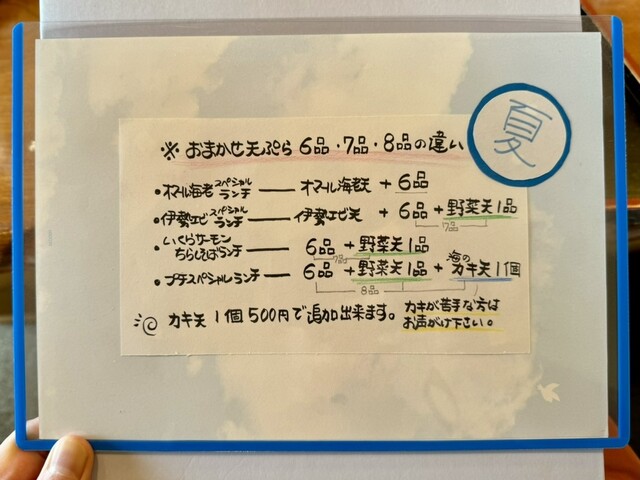 夏
※ おまかせ天ぷら 6品・7品・8品の違い
・オマール海老スペシャルランチ ― オマール海老天 + 6品
・伊勢エビスペシャルランチ ― 伊勢エビ天 + 6品 + 野菜天1品
7品
・いくらサーモンちらしそばランチ ― 6品 + 野菜天1品
7品
・プチスペシャルランチ ― 6品 + 野菜天1品 + 海のカキ天1個
8品
カキ天 1個500円で追加出来ます。
カキが苦手な方は
お声がけ下さい。